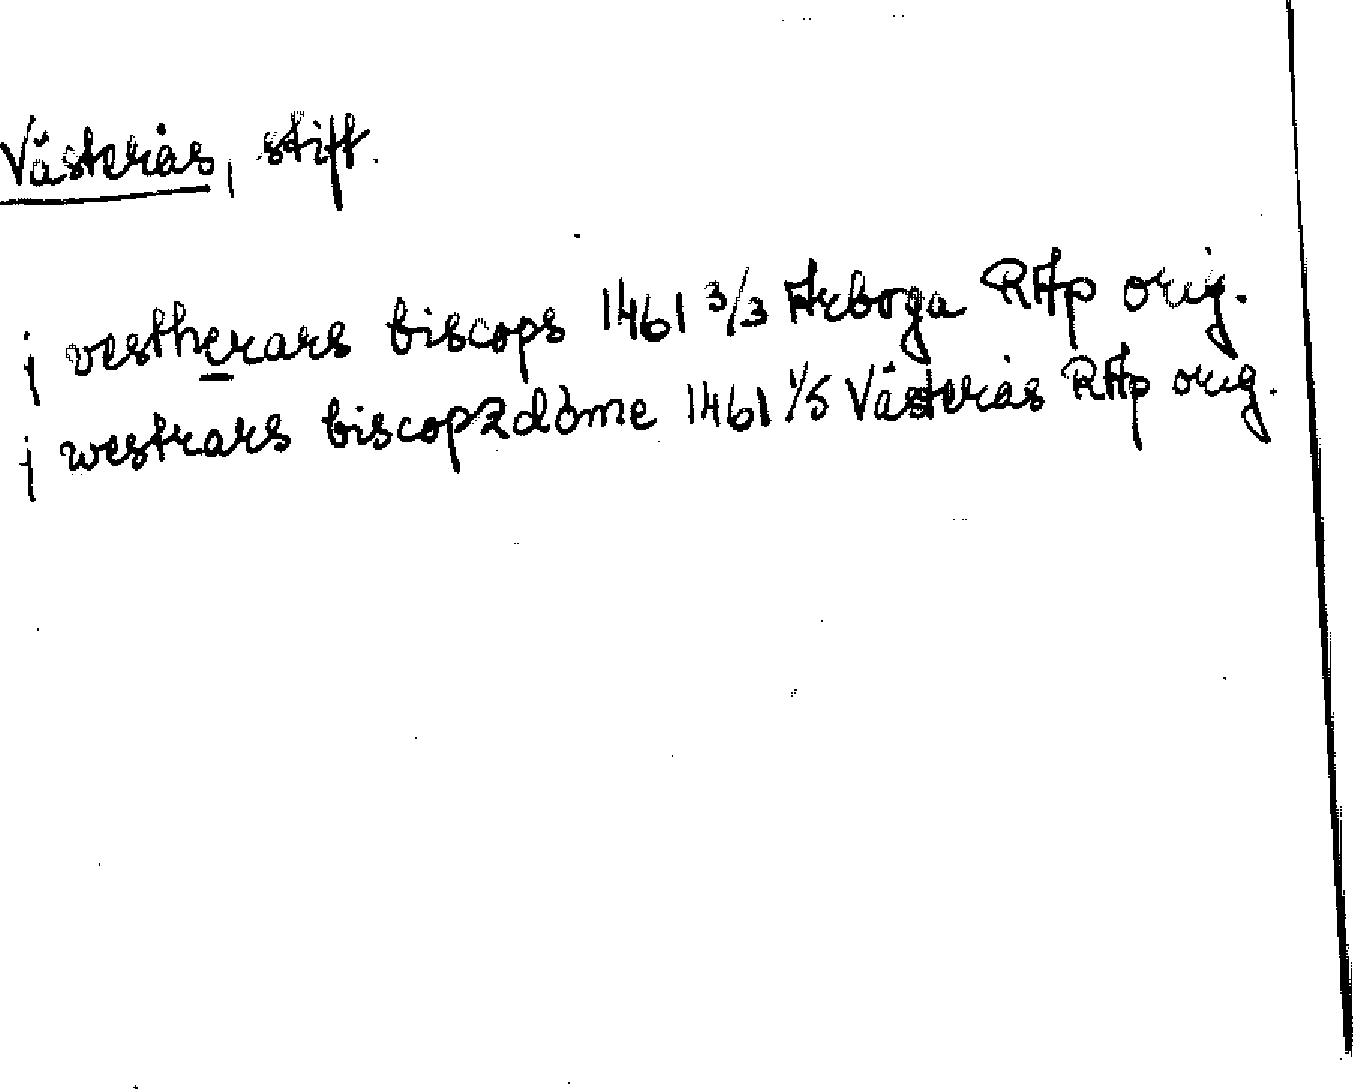 Västerås, stift.
j vestherars biscops 1461 3/3 Arboga RAp orig.
j westrars biscopzdöme 1461 1/5 Västerås RAp orig.